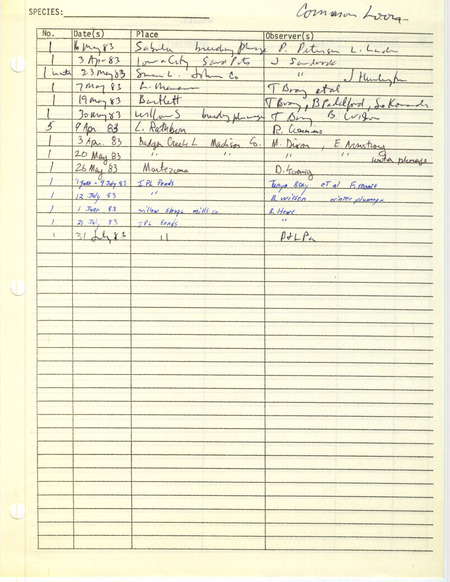 SPECIES: Common Loon
No. Date(s) Place Observer(s)
1 16 May 83 Sabula breeding plumage P. Petersen L. Linder
1 3 Apr 83 Iowa City Sand Pits J
1 23 May 83 Johnson Co " J
1 7 May 83 L. Manawa T Bray et al
1 19 May 83 Bartlett T Bray, B Padelford,
1 30 May 83 Willow S breeding plumage T Bray B. Wilson
5 9 Apr 83 L. Rathbun R. Cummins
1 3 Apr. 83 Badger Creek L Madison Co. M. Dixon, E Armstrong
1 20 May 83 " " " " winter plumage
1 26 May 83 Montezuma D.
1 9 June - 9 July 83 IPL Ponds Tanya Bray et al
1 12 July 83 " B. Wilson winter plumage
1 1 June 83 willow slough mills co B. Howe
1 21 Jul. 83 IPL Ponds "
1 31 July 83 " P+LPa